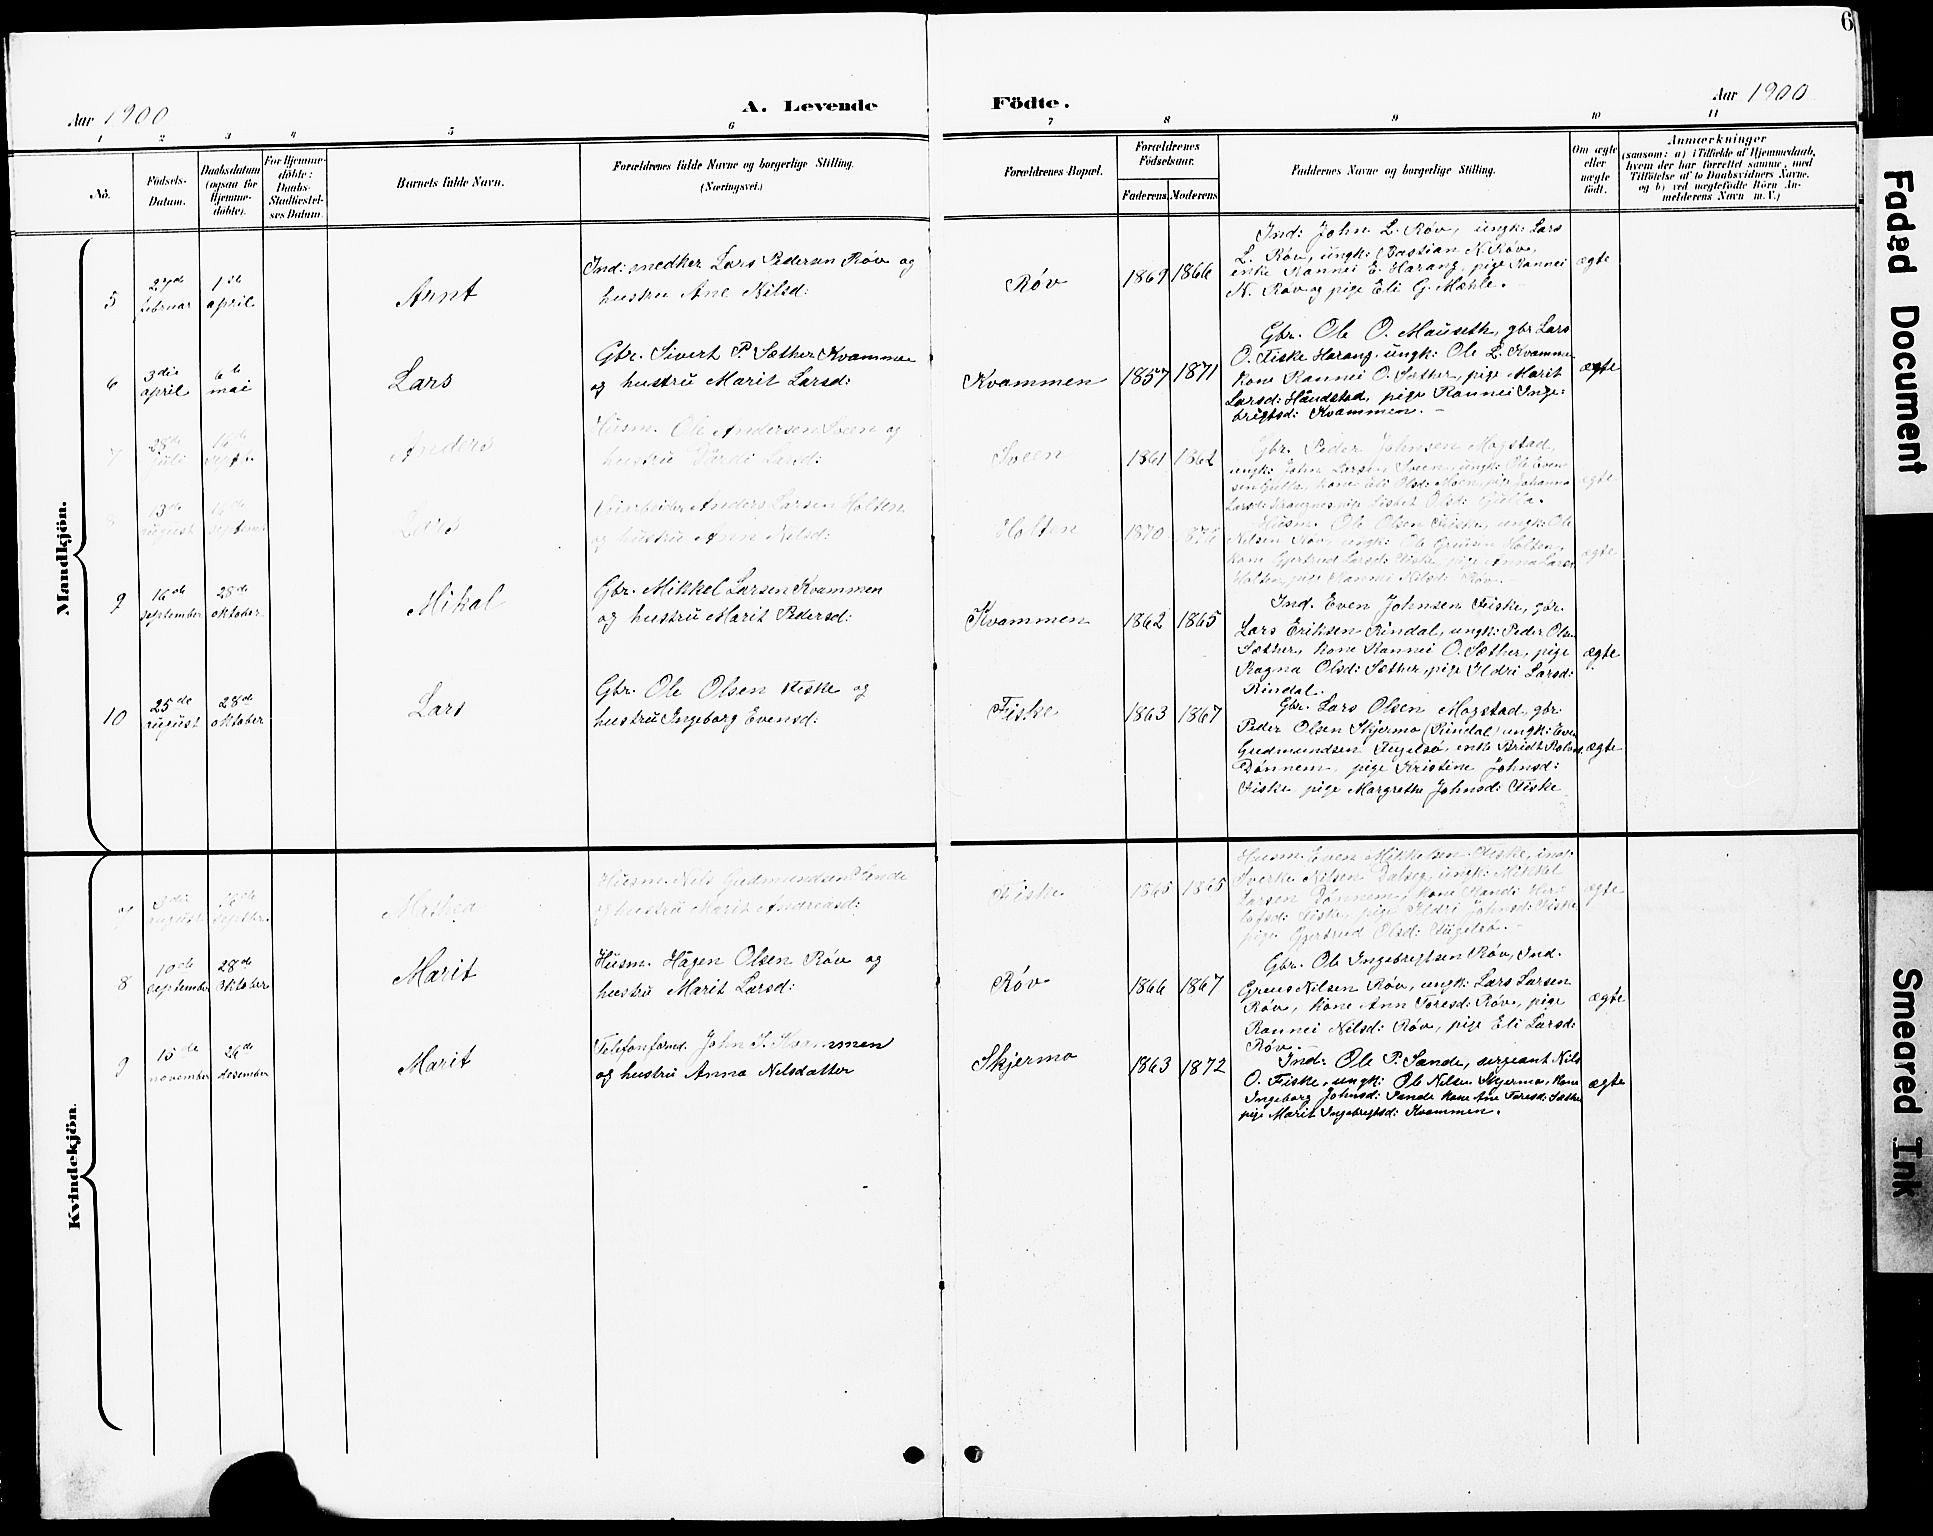 6
Aar 1900
A. Levende Födte.
Aar 1900
1 2 3 4 5 6 7 8 9 10 11
No.
Födsels-
Datum.
Daabsdatum
(ogsaa for
Hjemme-
döbte).
For Hjemme-
döbte:
Daabs-
Stadfæstel-
ses Datum.
Barnets fulde Navn.
Forældrenes fulde Navne og borgerlige Stilling.
(Næringsvei.)
Forældrenes Bopæl.
Forældrenes
Födselsaar.
Faderens. Moderens.
Faddernes Navne og borgerlige Stilling.
Om ægte
eller
uægte
födt.
Anmærkninger
(saasom: a) i Tilfælde af Hjemmedaab,
hvem der har forrettet samme, med
Tilföielse af to Daabsvidners Navne,
og b) ved uægtefödte Börn An-
melderens Navn m. V.)
Mandkjön.
5
februar
1ste
april
Arnt
Ind: snedker Lars Pedersen Röv og
hustru Ane Nilsd:
Röv
1869 1866
Ind: John L. Röv, ungk: Lars
L. Röv, ungk: Bastian N. Röv,
enke Rannei E. Harang, pige Rannei
N. Röv og pige Eli G. Mæhle.
ægte
6
3die
april
6te
mai
Lars
Gbr. Sivert P. Sæther Kvammen
og hustru Marit Larsd:
Kvammen
1857 1871
Gbr. Ole O. Mauseth, gbr Lars
O. Fiske Harang, ungk: Ole L. Kvammen
kone Rannei O. Sæther, pige Marit
Larsd: Haudstad, pige Rannei Inge:
brigtsd: Kvammen. –
ægte
7
28de
juli
Septb.
Anders
Husm. Ole Andersen Sveen og
hustru Larsd:
Sveen
1861 1862
Gbr. Peder Johnsen Mogstad,
ungk: John Larsen Sveen, ungk: Ole Even
sen Gjulla, kone Eli Olsd: Moen, pige Johanna
Larsd: pige Lisbet Olsd: Gjulla.
ægte
8
13de
august
septemb.
Lars
Anders Larsen Holten
og hustru Anne Nilsd:
Holten
1870 1876
Husm. Ole Olsen Fiske, ungk: Ole
Nilsen Röv, ungk: Ole Holten,
kone Gjertrud Larsd: Fiske, pige Anna Larsd
Holten, pige Rannei Nilsd: Röv.
ægte
9
16de
september
28de
oktober
Mikal
Gbr. Mikkel Larsen Kvammen
og hustru Marit Pedersd:
Kvammen
1862 1865
Ind. Even Johnsen Fiske, gbr.
Lars Eriksen Rindal, ungk: Peder Olsen
Sæther, kone Rannei O. Sæther, pige
Ragna Olsd: Sæther, pige Ildri Larsd:
Rindal.
ægte
10
25de
august
28de
oktober
Lars
Gbr. Ole Olsen Fiske og
hustru Ingeborg Evensd:
Fiske
1863 1867
Gbr. Lars Olsen Mogstad, gbr.
Peder Olsen Skjermo (Rindal) ungk: Even
Gudmundsen enke Bridt
Dönnem, pige Kristine Johnsd:
Fiske pige Margrethe Johnsd: Fiske
ægte
Kvindekjön.
7
august
septbr.
Husm. Nils Gudmundsen Sande
og hustru Marit Andreasd:
Fiske
1865 1865
Husm. Even Mikkelsen Fiske, ind:
Sverke Nilsen Dalseg, ungk: Mikkel
Larsen Dönnem, kone Randi Her:
lofsd: Fiske, pige Ildri Johnsd: Fiske
pige Gjertrud Olsd:
ægte
8
10de
september
28de
Oktober
Marit
Husm. Hagen Olsen Röv og
hustru Marit Larsd:
Röv
1866 1867
Gbr. Ole Ingebrigtsen Röv, Ind.
Greus Nilsen Röv, ungk: Lars Larsen
Röv, kone Ann Toresd: Röv, pige
Rannei Nilsd: Röv, pige Eli Larsd:
Röv. –
ægte
9
15de
november
26de
desember
Marit
Telefonforma. John S. Kvammen
og hustru Anna Nilsdatter
Skjermo
1863 1872
Ind: Ole P. Sande, sergeant Nils
O. Fiske, ungk: Ole Nilsen Skjermo, kone
Ingeborg Johnsd: Sande kone Ane Toresd: Sæther
pige Marit Ingebrigtsd: Kvammen.
ægte
Faded Document
Smeared Ink